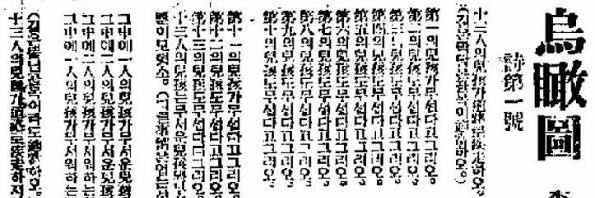 烏瞰圖
詩第一號
十三人의兒孩가道路로疾走하오.
(길은막달은골목이適當하오.)
第一의兒孩가무섭다고그리오.
第二의兒孩도무섭다고그리오.
第三의兒孩도무섭다고그리오.
第四의兒孩도무섭다고그리오.
第五의兒孩도무섭다고그리오.
第六의兒孩도무섭다고그리오.
第七의兒孩도무섭다고그리오.
第八의兒孩도무섭다고그리오.
第九의兒孩도무섭다고그리오.
第十의兒孩도무섭다고그리오.
第十一의兒孩가무섭다고그리오.
第十二의兒孩도무섭다고그리오.
第十三의兒孩도무섭다고그리오.
十三人의兒孩는무서운兒孩와무
뿐이모혓소.(다른事情은업는
그中에一人의兒孩가무서운兒孩
그中에二人의兒孩가무서운兒孩
그中에二人의兒孩가무서워하는
그中에一人의兒孩가무서워하는
(길은뚫닌골목이라도適當하오.
十三人의兒孩가道路로疾走하지